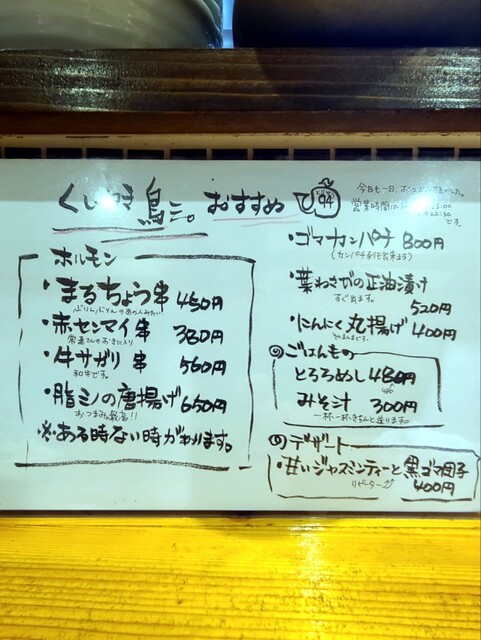 くしやき鳥三。おすすめ
94
営業時間は
です。
ホルモン
・まるちょう串 450円
・赤センマイ串 380円
常連さんのお気に入り
・牛サガリ串 560円
和牛です。
・脂ミノの唐揚げ 650円
おつまみに最高!!
※ある時ない時がわります。
・ゴマカンパチ 800円
(カンパチ刺も出来ます)
・葉わさびの正油漬け
すぐ出ます。
520円
・にんにく丸揚げ 400円
ごはんもの
とろろめし 480円
みそ汁 300円
一杯一杯きちんと造ります。
デザート
・甘いジャスミンティーと黒ゴマ団子
リピーター
400円